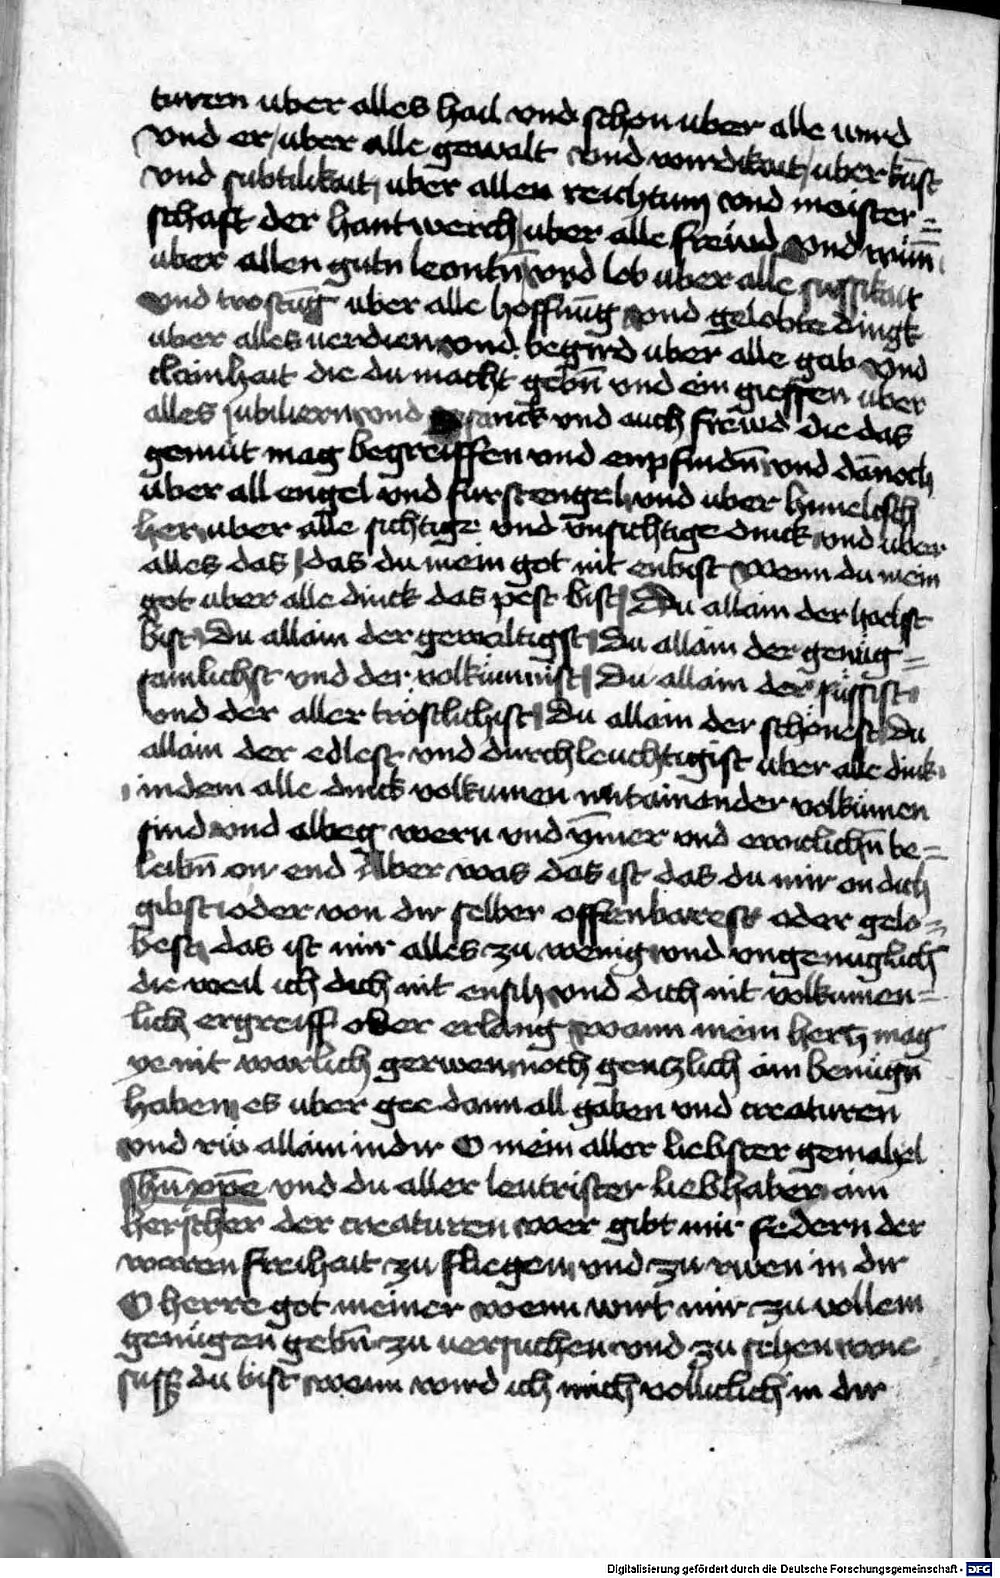 turen uber alles hail vnd schon uber alle wird
vnd er / uber alle gewalt vnd wirdikait / uber kūst
vnd subtilikait / uber allen reichtum vnd meister=
schaft der hantwerch / uber alle frewd vnd wūn
uber allen gutn leontn vnd lob uber alle sussikait
vnd trostūg uber alle hoffnūg vnd gelobte dingk
uber alles uerdienn vnd begird uber alle gab vnd
clainhait die du macht gebn̄ vnd ein giessen uber
alles jubiliern vnd ... vnd auch frewd die das
gemüt mag begreiffen vnd enpfindn̄ vnd dānoch
uber all engel vnd furstengel vnd uber himelisch
her uber alle sichtige vnd vnsichtige dinck vnd uber
alles das / das du mein got nit enbist Wenn du mein
got uber alle dinck das pest bist / Du allain der hochst
bist / Du allain der gewaltigst / Du allain der genüg=
samlichst vnd der volkumnist / Du allain der süssist
vnd der aller tröstlichist / Du allain der schönest / Du
allain der edlest vnd durchleuchtigist uber alle dinck
in dem alle dinck volkumen mit ainander volkūmen
sind vnd albeg wern vnd ymer vnd ewiclichn̄ be=
leibn̄ on end Aber was das ist das du mir on dich
gibst oder von dir selber offenbarest oder gelo=
best / das ist mir alles zu wenig vnd vngenuglich
die weil ich dich nit ensih vnd dich nit volkumen=
lich ergreiff ober erlang wann mein hertz mag
ye nit warlich gerwen noch gentzlich ain benügn̄
haben es uber gee dann all gaben vnd creaturen
vnd riw allain in dir O mein aller liebster gemahel
ihū xp̄e vnd du aller leutrister liebhaber ain
herscher der creaturen wer gibt mir federn der
waren freihait zu fliegen vnd zu rwen in dir
O herre got meiner wenn wirt mir zu vollem
genügen gebn̄ zu uersuchen vnd zu sehen wie
suss du bist wenn wird ich mich volliclich in dir
Digitalisierung gefördert durch die Deutsche Forschungsgemeinschaft - DFG